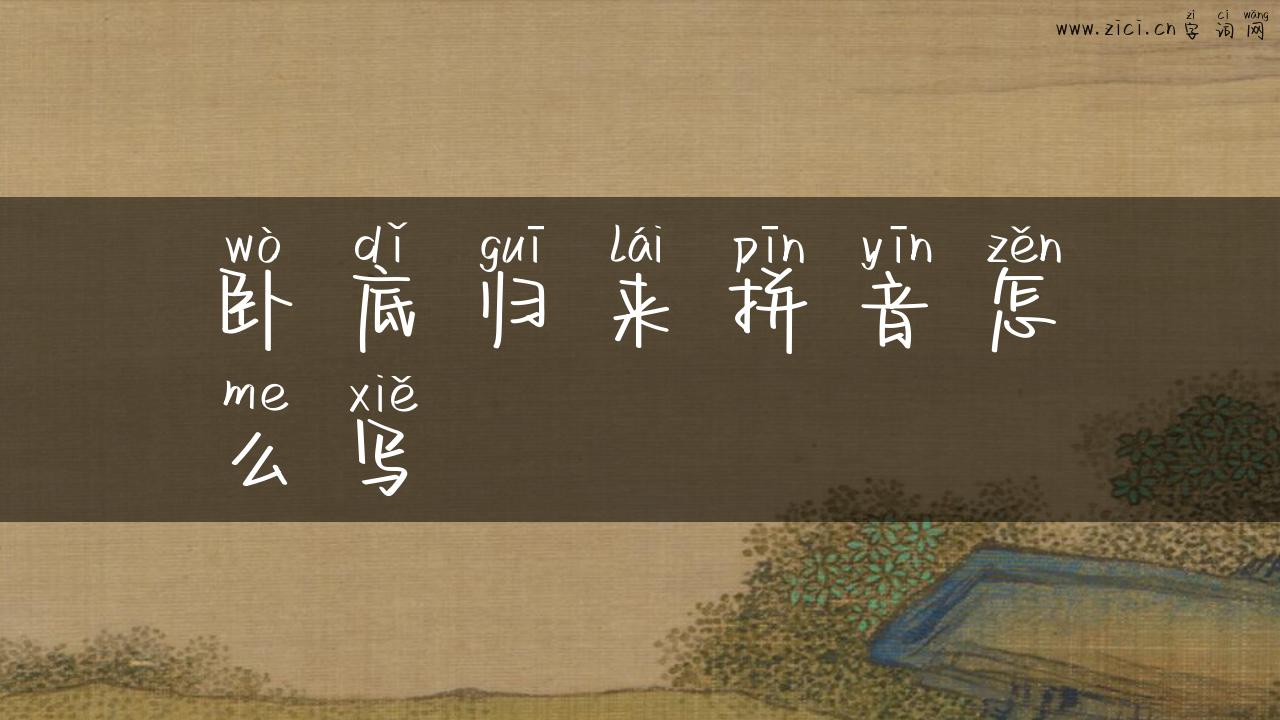 zì cí wǎng
www.zici.cn 字 词 网
wò dǐ guī lái pīn yīn zěn
卧 底 归 来 拼 音 怎
me xiě
么 写